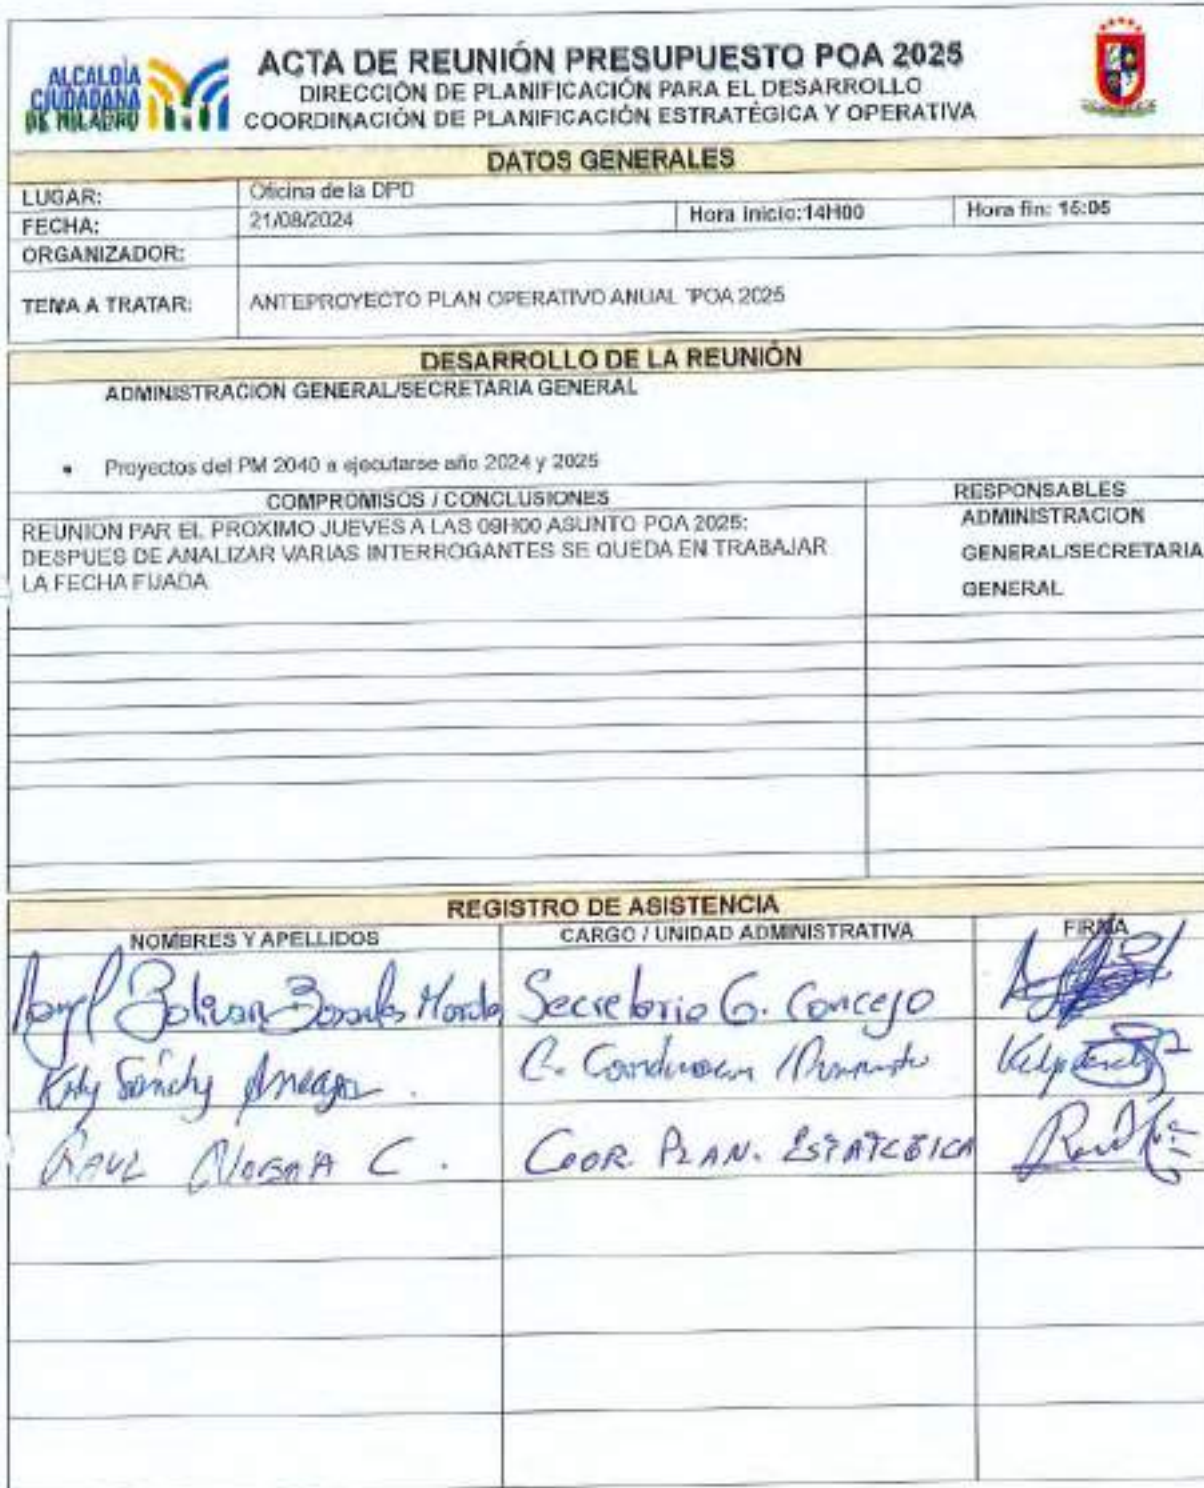 ALCALDÍA
CIUDADANA
DE MILAGRO
ACTA DE REUNIÓN PRESUPUESTO POA 2025
DIRECCIÓN DE PLANIFICACIÓN PARA EL DESARROLLO
COORDINACIÓN DE PLANIFICACIÓN ESTRATÉGICA Y OPERATIVA
DATOS GENERALES
LUGAR: Oficina de la DPD
FECHA: 21/08/2024 Hora inicio:14H00 Hora fin: 15:05
ORGANIZADOR:
TEMA A TRATAR: ANTEPROYECTO PLAN OPERATIVO ANUAL "POA 2025
DESARROLLO DE LA REUNIÓN
ADMINISTRACION GENERAL/SECRETARIA GENERAL
• Proyectos del PM 2040 a ejecutarse año 2024 y 2025
COMPROMISOS / CONCLUSIONES RESPONSABLES
REUNION PAR EL PROXIMO JUEVES A LAS 09H00 ASUNTO POA 2025:
DESPUES DE ANALIZAR VARIAS INTERROGANTES SE QUEDA EN TRABAJAR
LA FECHA FIJADA
ADMINISTRACION
GENERAL/SECRETARIA
GENERAL
REGISTRO DE ASISTENCIA
NOMBRES Y APELLIDOS CARGO / UNIDAD ADMINISTRATIVA FIRMA
Bolivar Secretario G. Concejo
C.
RAUL C. COOR. PLAN.